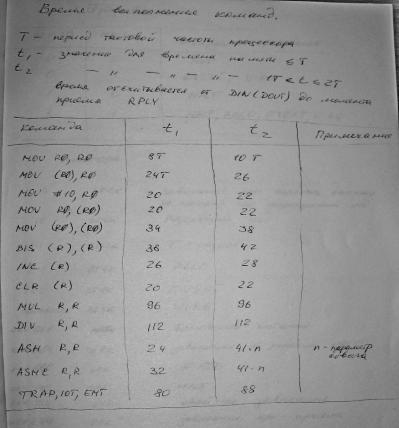 Время выполнения команд.
T - период тактовой частоты процессора
t1 - значение для времена памяти ≤ T
t2 — " — " — " — 1T < t ≤ 2T
время отсчитывается от DIN (DOUT) до момента
приема RPLY
команда t1 t2 Примечание
MOV R0, R0 8T 10T
MOV (R0), R0 24T 26
MOV #10, R0 20 22
MOV R0, (R0) 20 22
MOV (R0), (R0) 34 38
BIS (R), (R) 38 42
INC (R) 26 28
CLR (R) 20 22
MUL R, R 96 96
DIV R, R 112 112
ASH R, R 24 41·n n - параметр
сдвига
ASHC R, R 32 41·n
TRAP, IOT, EMT 80 88